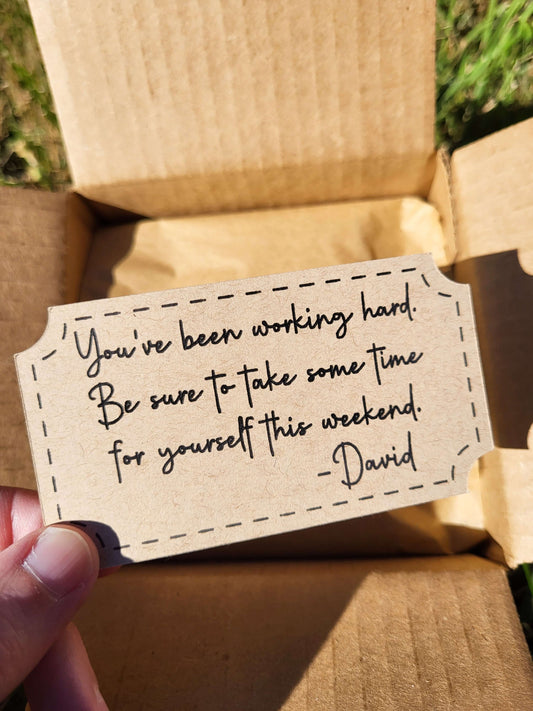 You've been working hard.
Be sure to take some time
for yourself this weekend.
-David